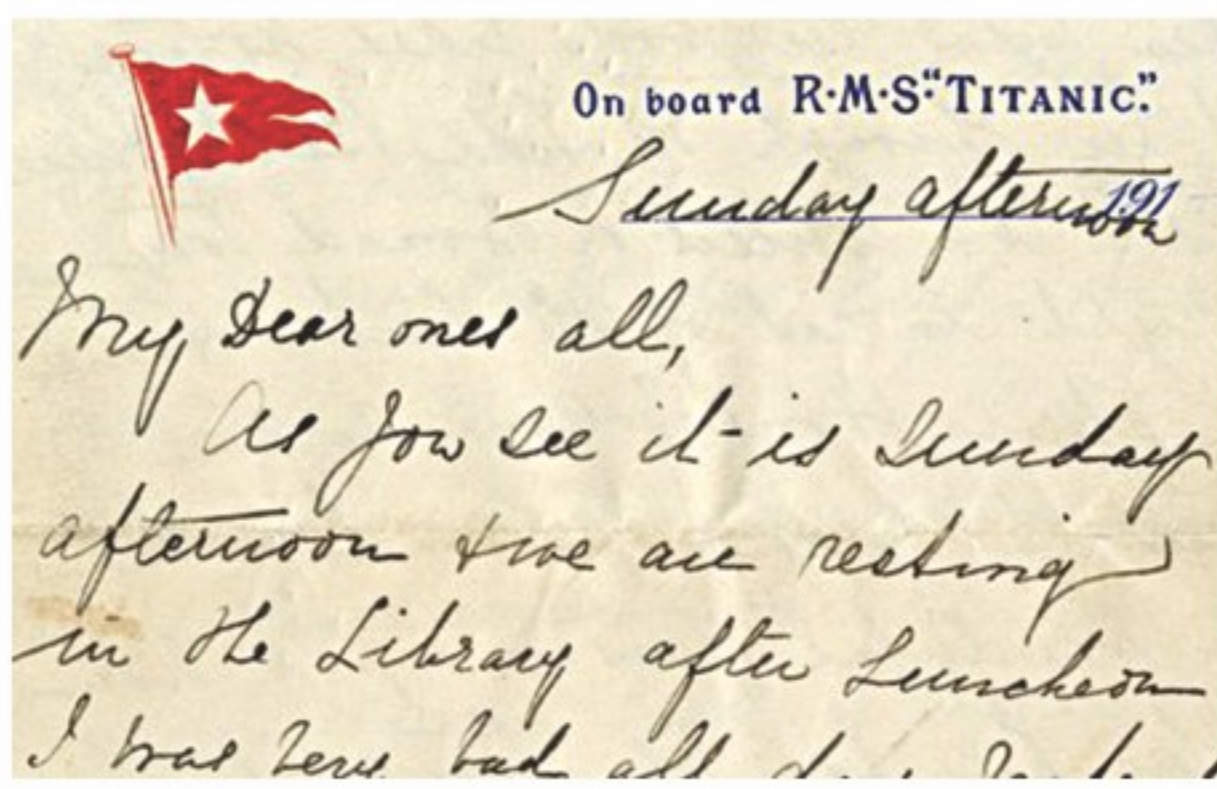 On board R·M·S·“TITANIC.”
Sunday afternoon 191
My Dear ones all,
As you see it is Sunday
afternoon & we are resting
in the Library after Luncheon
I was very bad all day